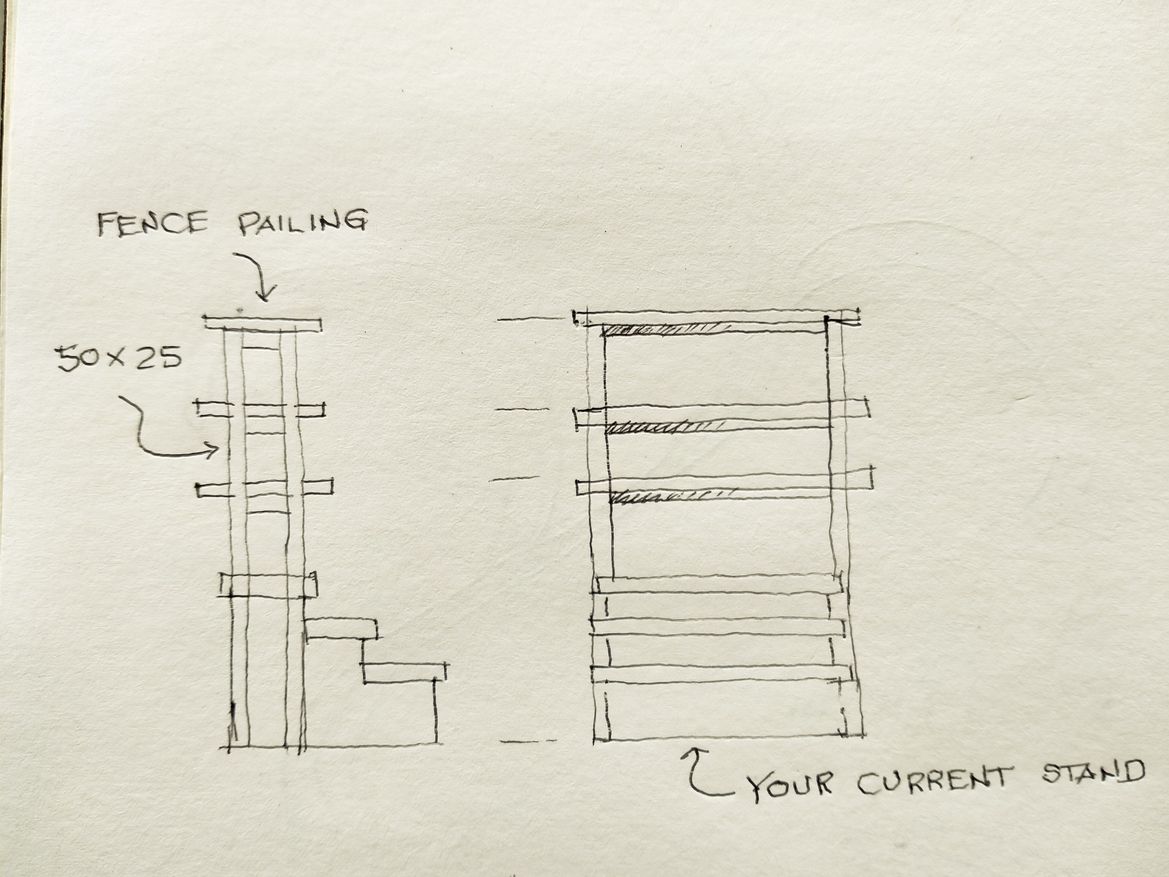 FENCE PAILING
50x25
YOUR CURRENT STAND